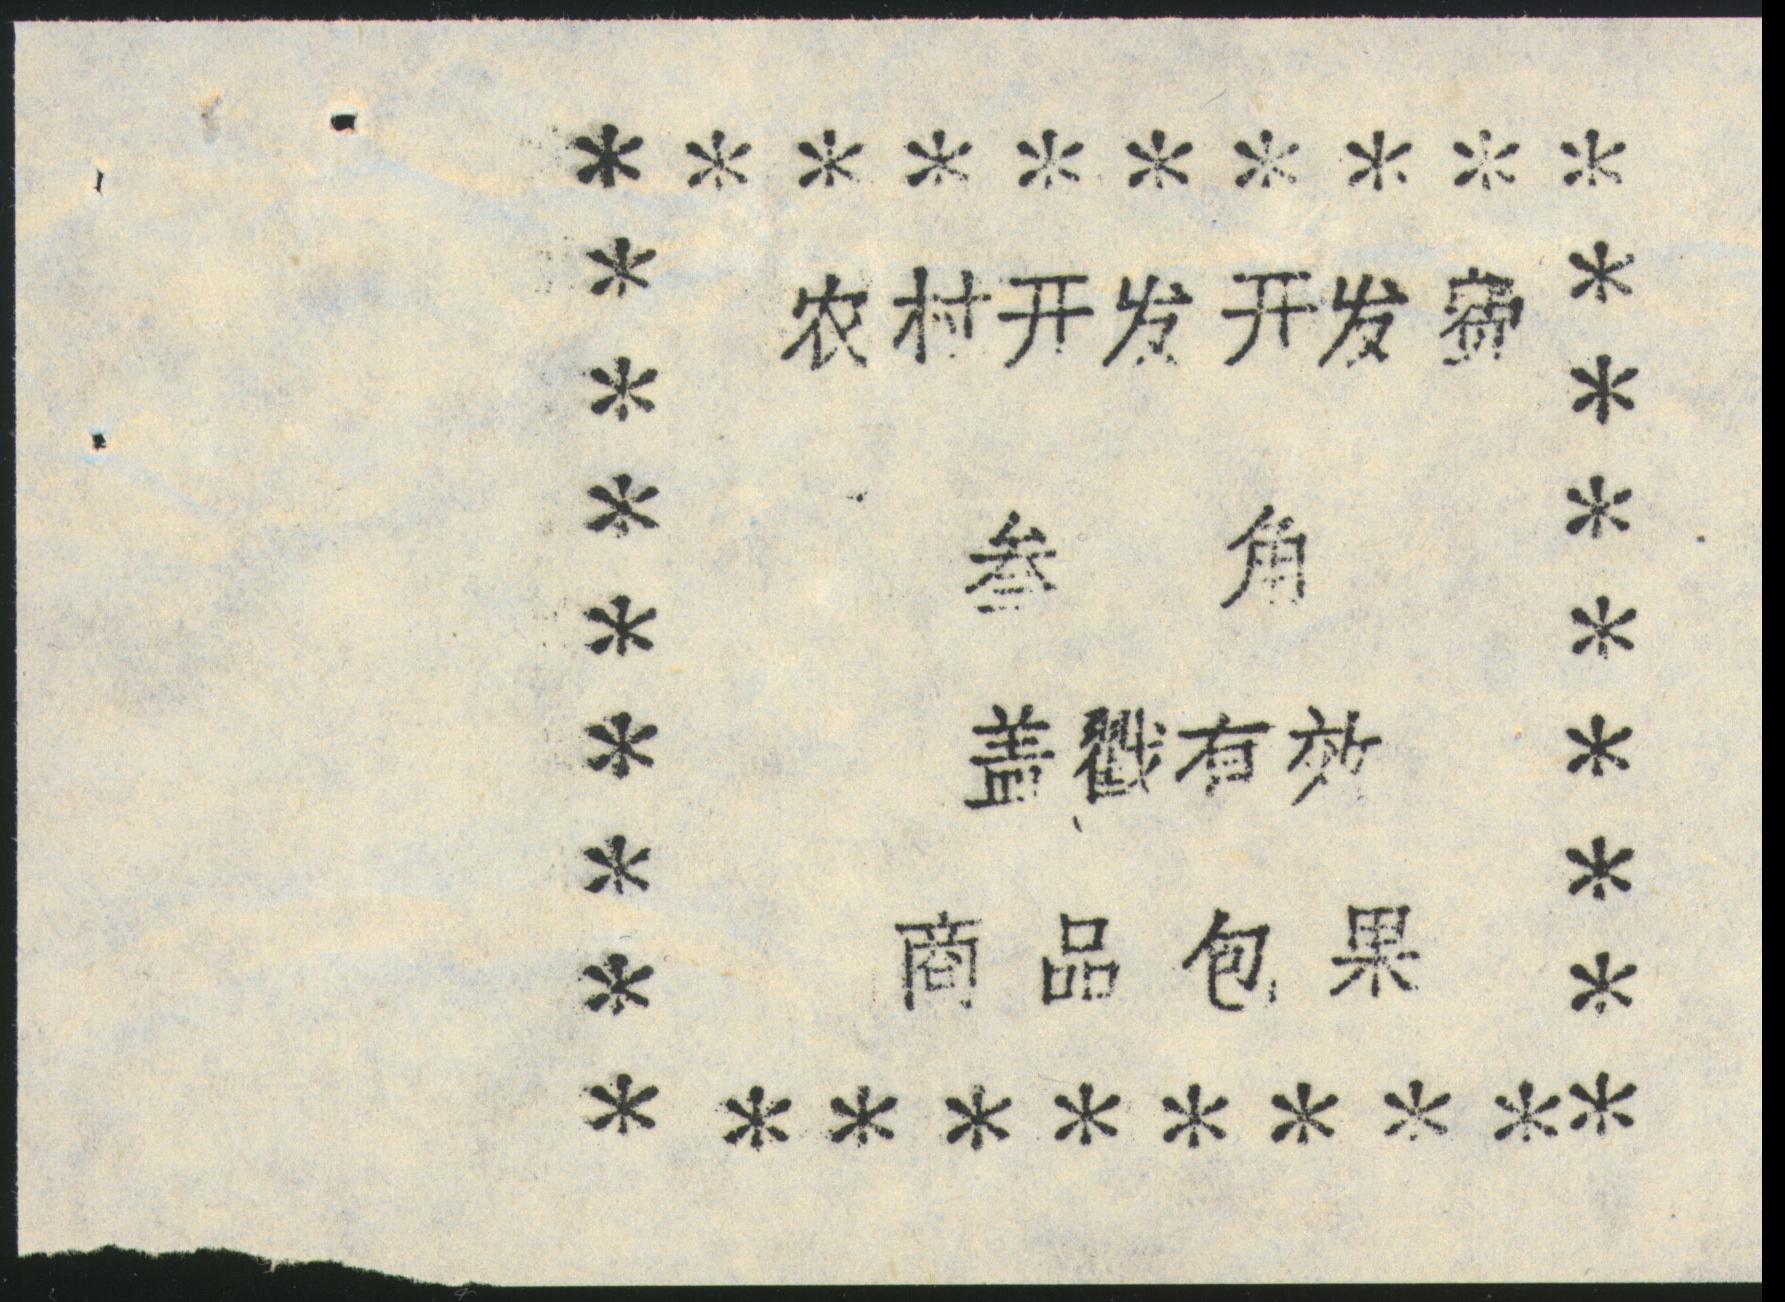 农村开发开发费
叁角
盖戳有效
商品包果